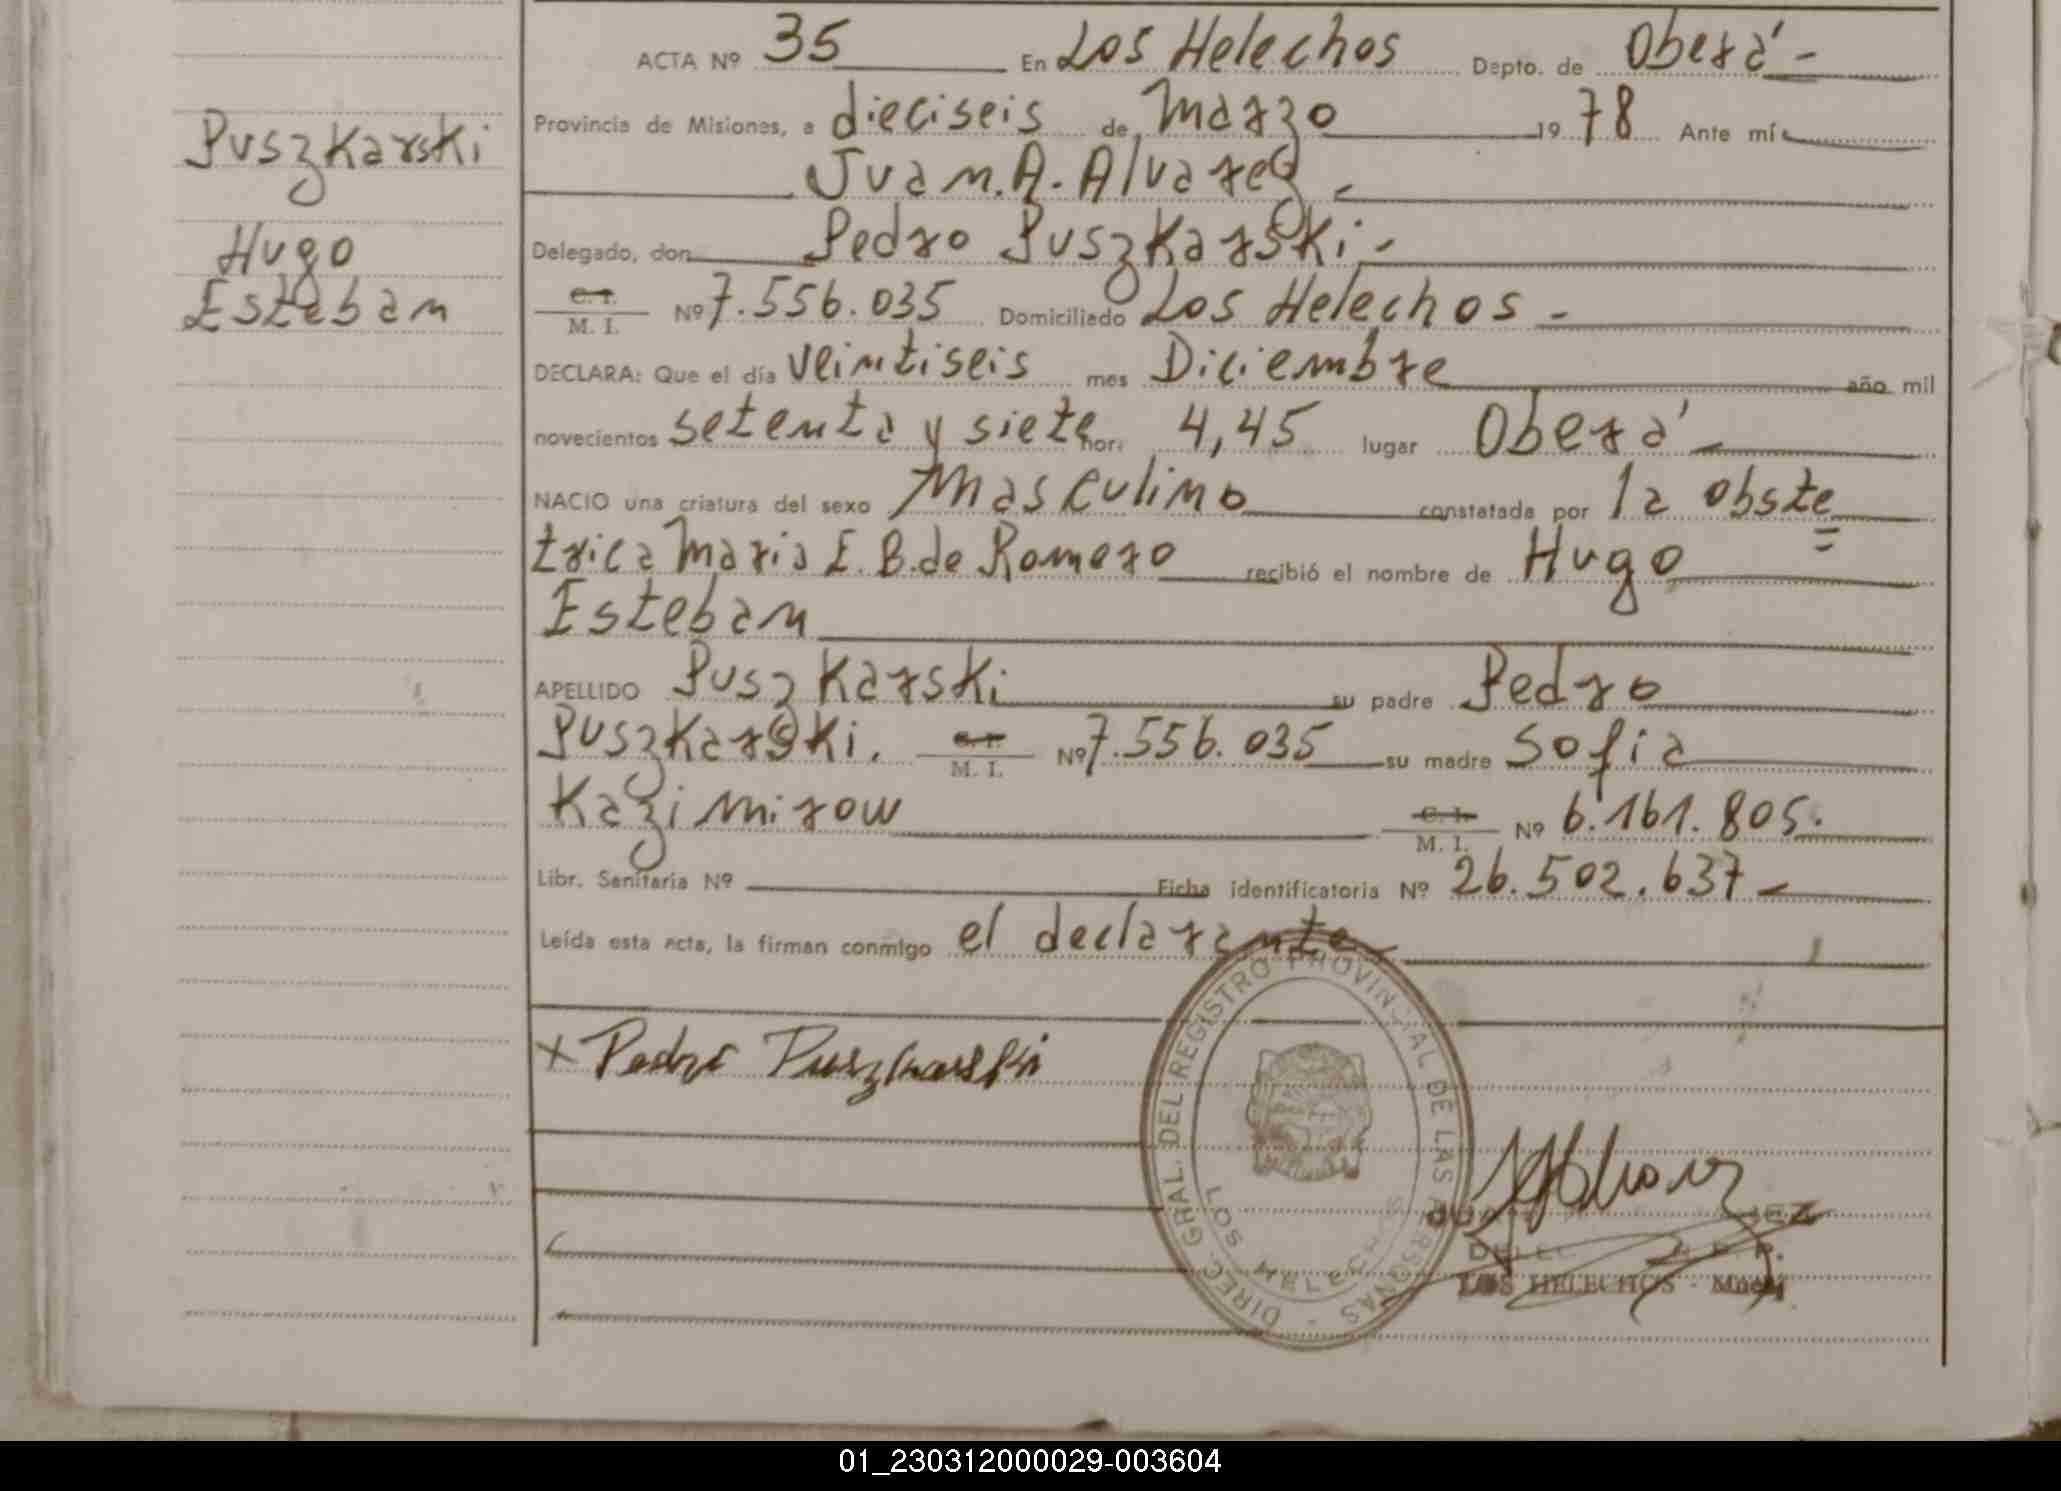 ACTA Nº 35 En Los Helechos Depto. de Oberá -
Provincia de Misiones, a dieciseis de Marzo 19 78 Ante mí
Juan. A. Alvarez
Delegado, don Pedro Puszkarski -
C. I.
M. I. Nº 7.556.035 Domiciliado Los Helechos -
DECLARA: Que el día veintiseis mes Diciembre año mil
novecientos setenta y siete hor. 4,45 lugar Oberá
NACIO una criatura del sexo Masculino constatada por la obste=
trica Maria E. B. de Romero recibió el nombre de Hugo
Esteban
APELLIDO Puszkarski su padre Pedro
Puszkarski. C. I.
M. I. Nº 7.556.035 su madre Sofia
Kazimirow C. I.
M. I. Nº 6.161.805.
Libr. Sanitaria Nº Ficha identificatoria Nº 26.502.637 -
Leída esta acta, la firman conmigo el declarante
Puszkarski
Hugo
Esteban
+ Pedro Puszkarski
DIREC. GRAL. DEL REGISTRO PROVINCIAL DE LAS PERSONAS -
LOS HELECHOS
LOS HELECHOS -
01_230312000029-003604